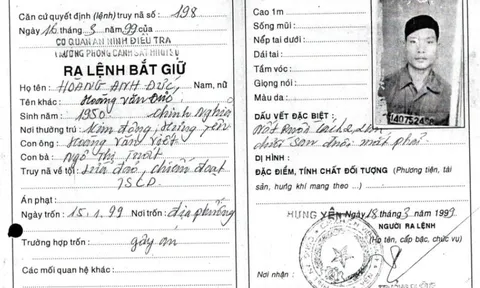 Căn cứ quyết định (lệnh) truy nã số: 198
Ngày 16 tháng 3 năm 99 của
CƠ QUAN AN NINH ĐIỀU TRA
TRƯỞNG PHÒNG CẢNH SÁT
RA LỆNH BẮT GIỮ
Họ tên: HOÀNG ANH ĐỨC, Nam, nữ
Tên khác: Hoàng Văn Đức
Sinh năm: 1950 Chính Nghĩa
Nơi thường trú: Kim Động, Hưng Yên
Con ông: Hoàng Văn Việt
Con bà: Ngô Thị
Truy nã về tội: Lừa đảo, chiếm đoạt
TSCD.
Án phạt:
Ngày trốn: 15.1.99 Nơi trốn: địa phương
Trường hợp trốn: gây án
Các mối quan hệ khác:
Cao 1m
Sống mũi:
Nếp tai dưới:
Dái tai:
Tầm vóc:
Giọng nói:
Màu da:
DẤU VẾT ĐẶC BIỆT: Nốt ruồi
dưới sau đuôi mắt phải.
DỊ HÌNH:
ĐẶC ĐIỂM, TÍNH CHẤT ĐỐI TƯỢNG (Phương tiện, tài
sản, hung khí mang theo ...)
HƯNG YÊN Ngày 18 tháng 3 năm 1993
NGƯỜI RA LỆNH
(Họ tên, cấp bậc, chức vụ)
Nơi nhận: